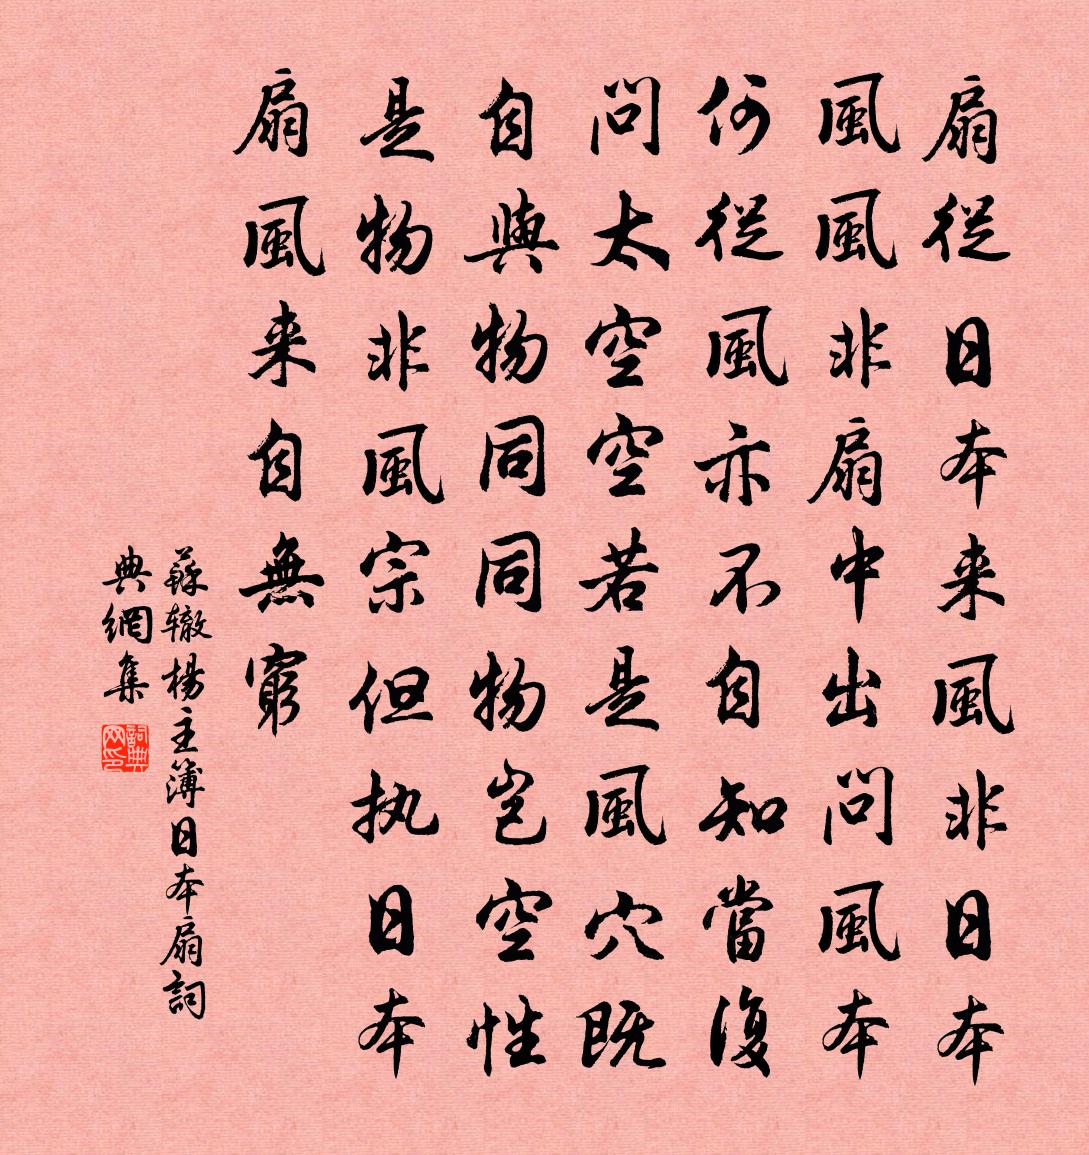 扇從日本来風非日本
風風非扇中出問風本
何從風亦不自知當復
問太空空若是風穴既
自與物同同物岂空性
是物非風宗但执日本
扇風来自無窮
蘇辙楊主簿日本扇詞
典網集
詞典網印